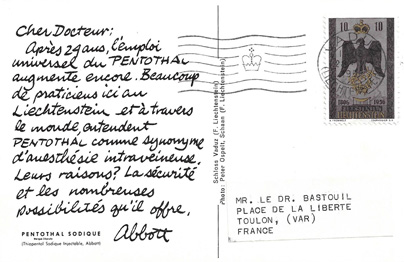 Cher Docteur:
Après 29 ans, l'emploi
universel du PENTOTHAL
augmente encore. Beaucoup
de praticiens ici au
Liechtenstein et à travers
le monde, entendent
PENTOTHAL comme synonyme
d'anesthésie intraveineuse.
Leurs raisons? La sécurité
et les nombreuses
possibilités qu'il offre.
Abbott
PENTOTHAL SODIQUE
(Thiopental Sodique Injectable, Abbott)
Schloss Vaduz (F. Liechtenstein)
Photo: Peter Ospelt, Schaan (F. Liechtenstein)
10 10
MR. LE DR. BASTOUIL
PLACE DE LA LIBERTE
TOULON, (VAR)
FRANCE